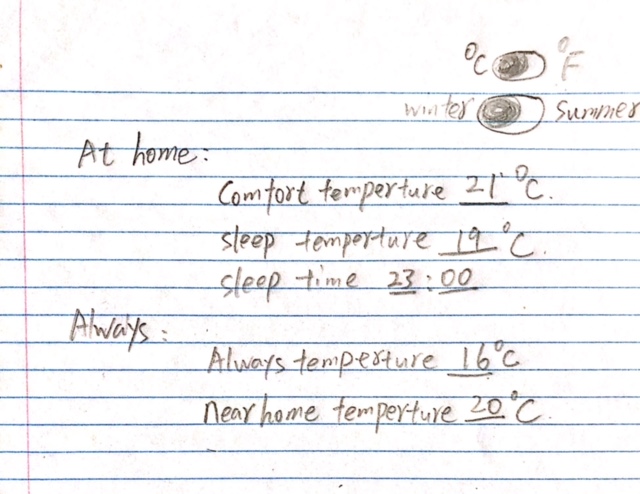 °C °F
winter summer
At home:
Comfort temperture 21°C.
sleep temperture 19°C.
sleep time 23:00
Always:
Always temperture 16°C
near home temperture 20°C.